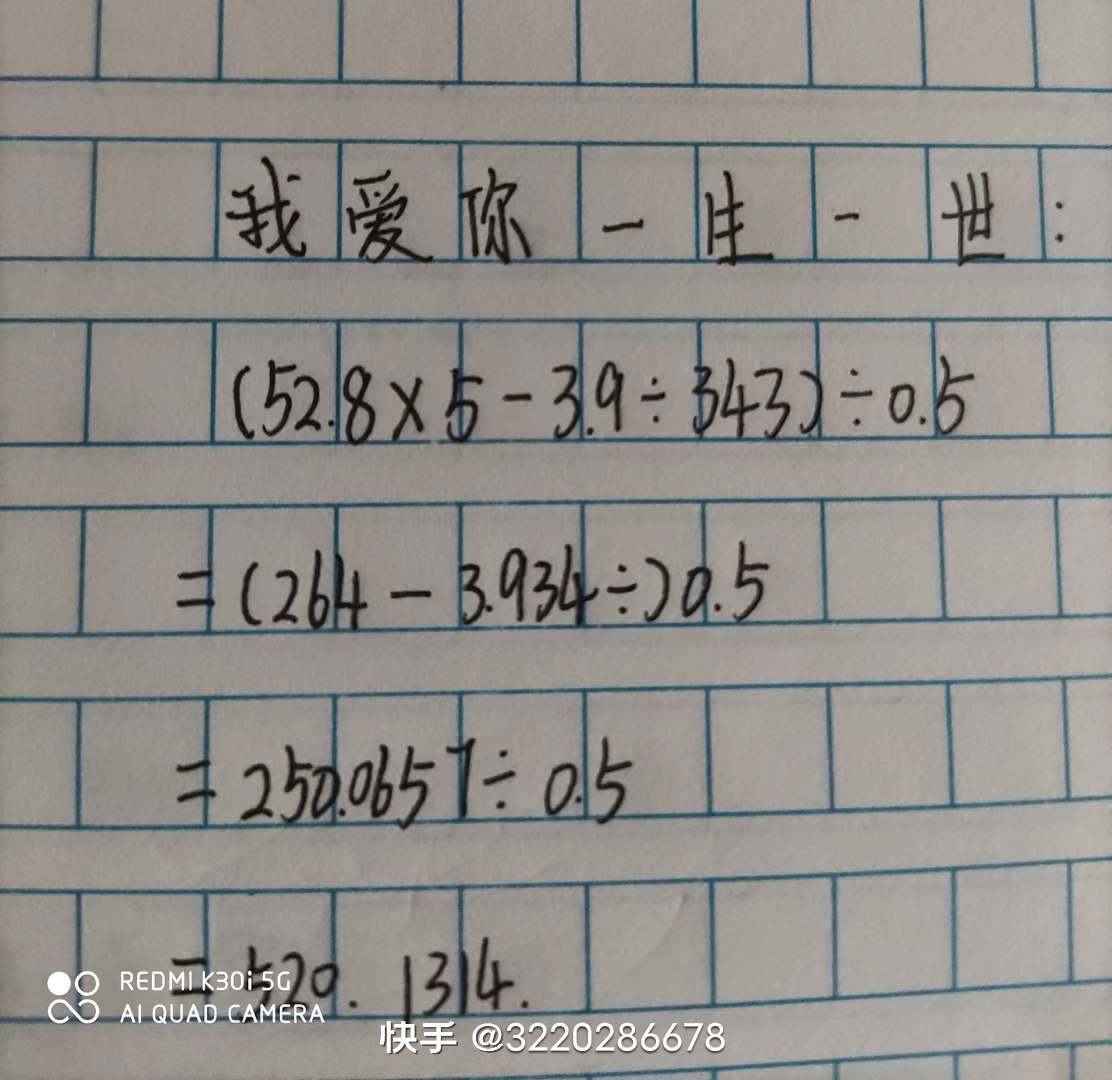 我爱你一生一世:
(52.8×5-3.9÷343)÷0.5
=(264-3.934÷)0.5
=250.0657÷0.5
=520.1314.
REDMI K30i 5G
AI QUAD CAMERA
快手 @3220286678